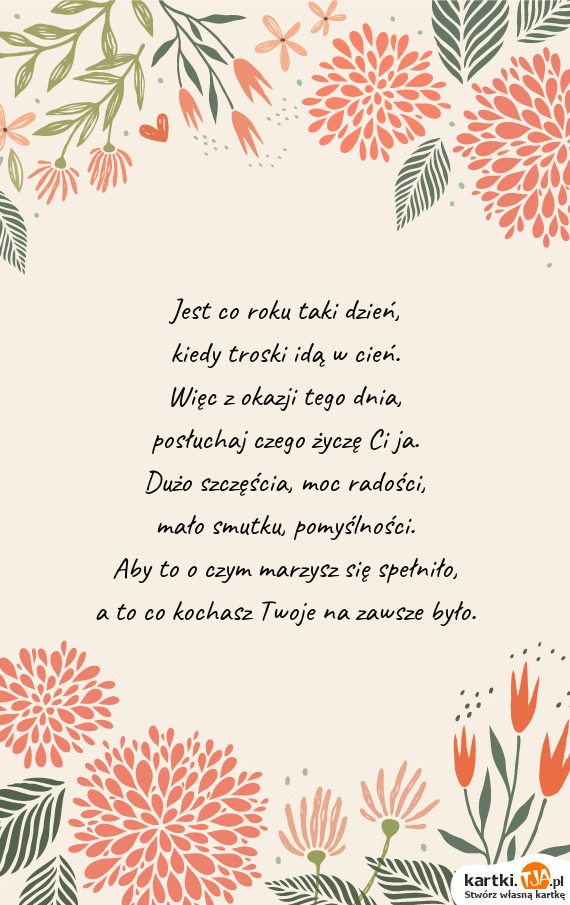 Jest co roku taki dzień,
kiedy troski idą w cień.
Więc z okazji tego dnia,
posłuchaj czego życzę Ci ja.
Dużo szczęścia, moc radości,
mało smutku, pomyślności.
Aby to o czym marzysz się spełniło,
a to co kochasz Twoje na zawsze było.
kartki.TJA.pl
Stwórz własną kartkę